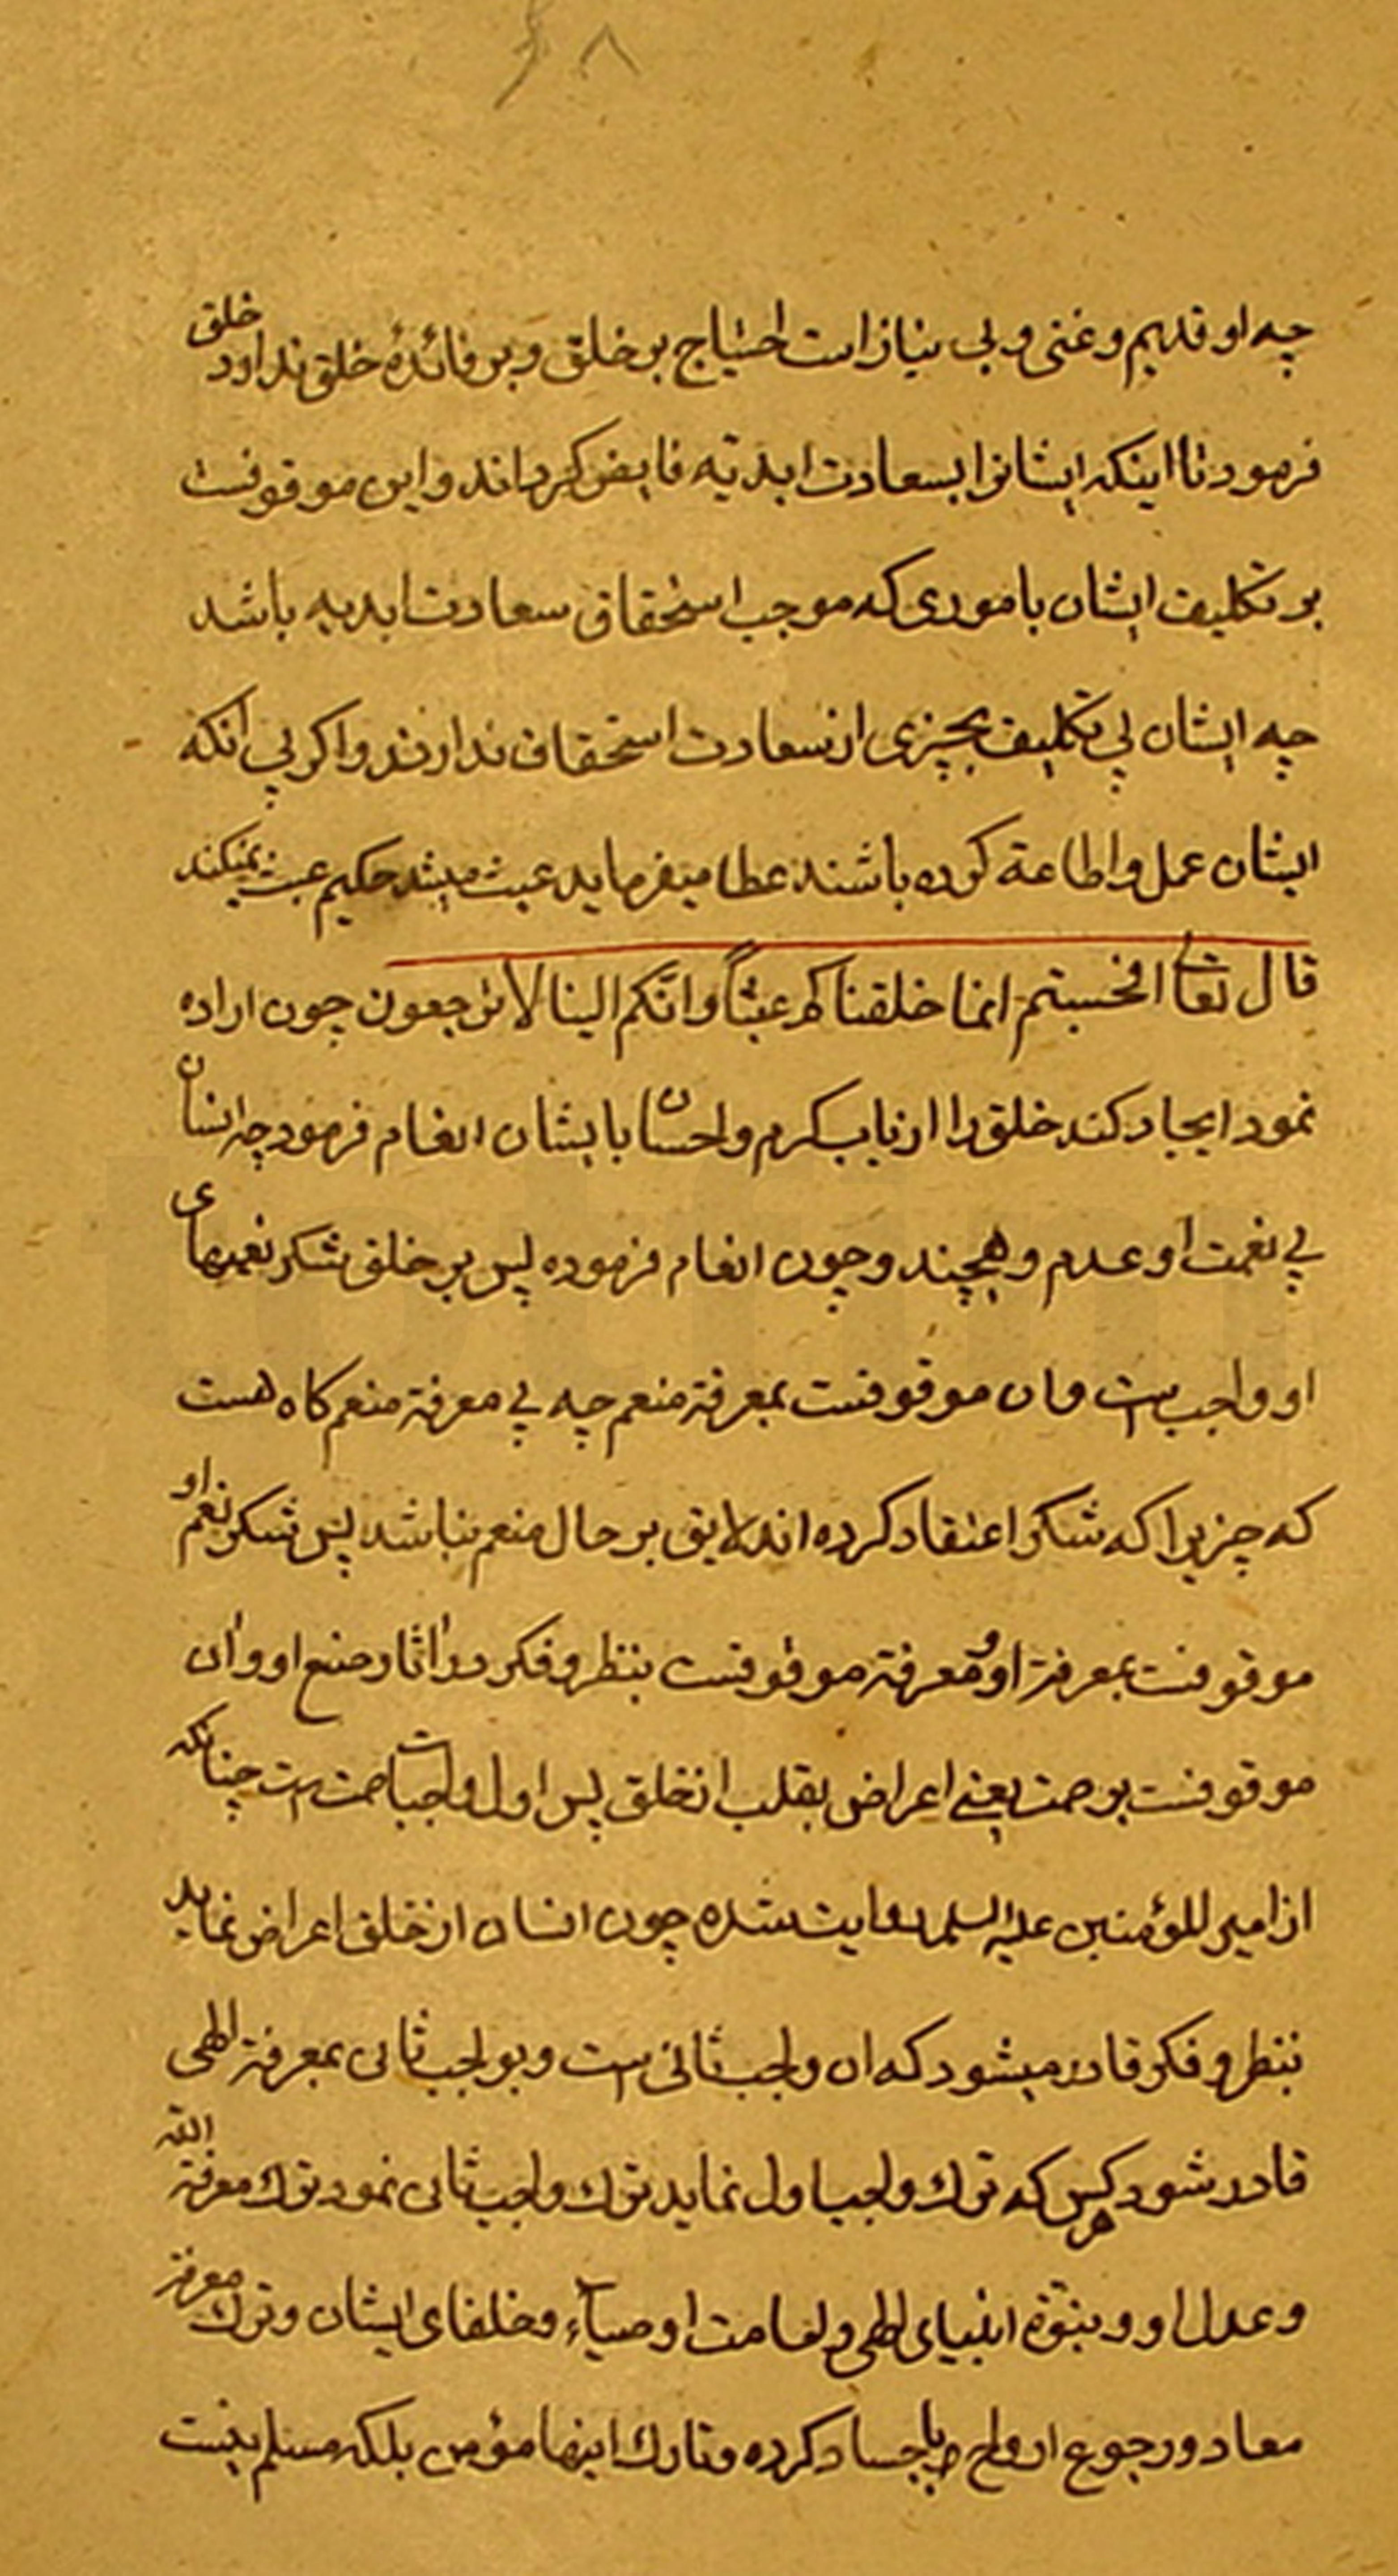 ۶۸
چه او قدیم و غنی و بی نیاز است احتیاج بر خلق و بر فائدهٔ خلق ندارد خلق
فرمود تا اینکه ایشانرا بسعادت ابدیّه فایض کرداند و این موقوفست
بر تکلیف ایشان باموری که موجب استحقاق سعادت ابدیه باشد
چه ایشان بی تکلیف بچیزی از سعادت استحقاق ندارند و اکر بی انکه
ایشان عمل و اطاعة کرده باشند عطا میفرماید عبث میشد حکیم عبث نمیکند
قال تعالی افحسبتم انما خلقناکم عبثاً و انّکم الینا لا ترجعون چون اراده
نمود ایجاد کند خلق را از باب کرم و احسان با ایشان انعام فرمود چه انسان
بی نعمت او عدم و هیچند و چون انعام فرموده پس بر خلق شکر نعمتهای
او واجب است و ان موقوفست بمعرفة منعم چه بی معرفة منعم کاه هست
که چیزیرا که شکر اعتقاد کرده اند لایق بر حال منعم نباشد پس شکر نعم او
موقوفست بمعرفة او و معرفة موقوفست بنظر و فکر در آثار و صنع او و آن
موقوفست بر صمت یعنی اعراض بقلب از خلق پس اول واجبات صمت است چنانکه
از امیر المؤمنین علیه السلم روایت شده چون انسان از خلق اعراض نماید
بنظر و فکر قادر میشود که ان واجب ثانی است و بواجب ثانی بمعرفة الهی
قادر شود هر کس که ترك واجب اول نماید ترك واجب ثانی نمود ترك معرفة الله
و عدل او و نبوّة انبیای الهی و امامت اوصیآء و خلفای ایشان و ترك معرفة
معاد و رجوع ارواح باجساد کرده و تارك اینها مؤمن بلکه مسلم نیست